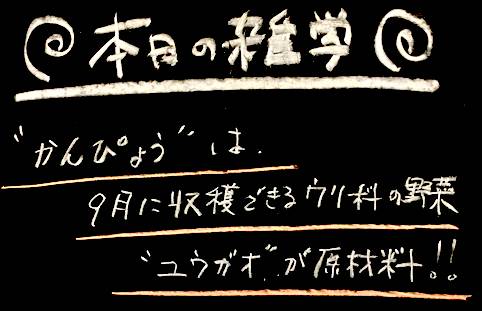 本日の雑学
"かんぴょう"は、
9月に収穫できるウリ科の野菜
"ユウガオ"が原材料!!